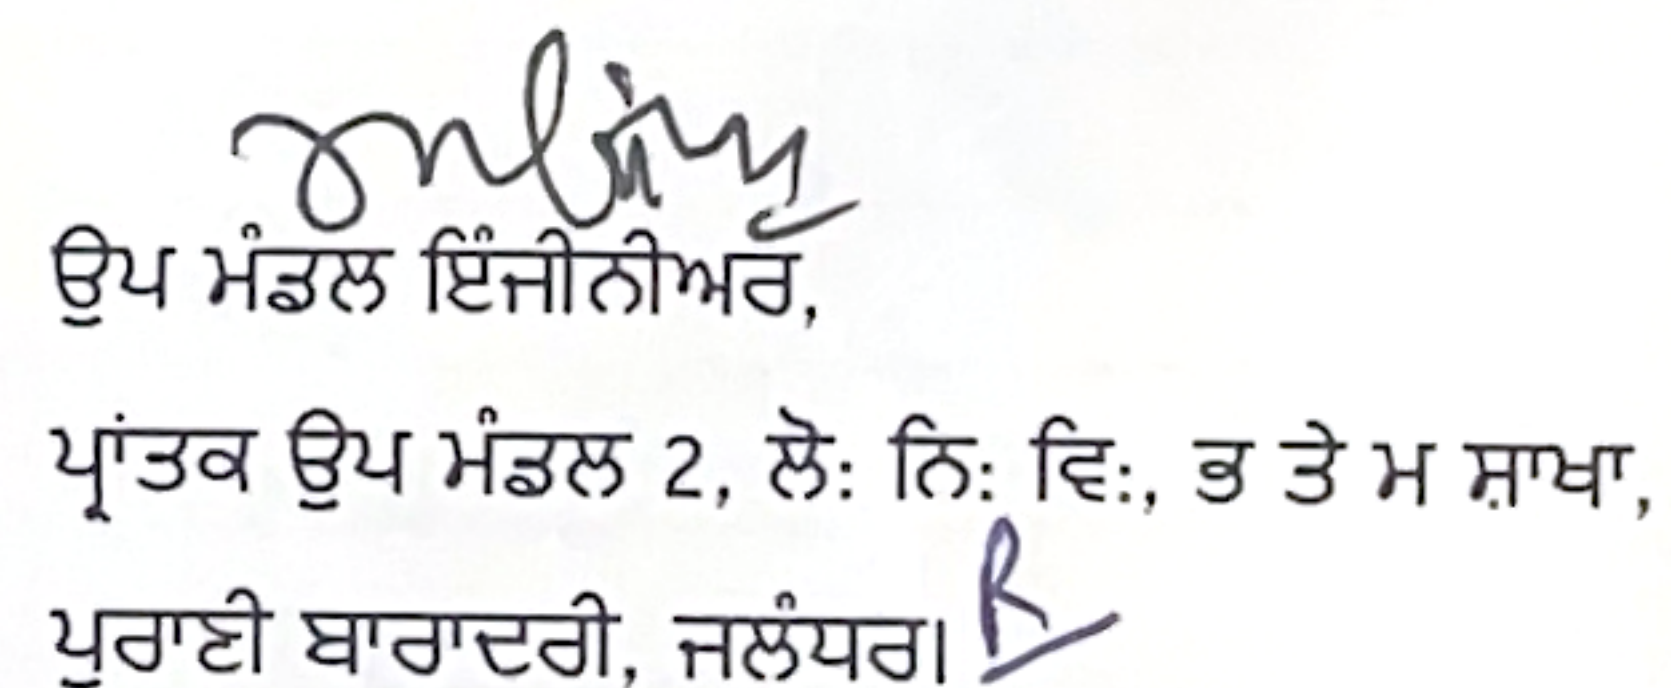 ਉਪ ਮੰਡਲ ਇੰਜੀਨੀਅਰ,
ਪ੍ਰਾਂਤਕ ਉਪ ਮੰਡਲ 2, ਲੋ: ਨਿ: ਵਿ:, ਭ ਤੇ ਮ ਸ਼ਾਖਾ,
ਪੁਰਾਣੀ ਬਾਰਾਦਰੀ, ਜਲੰਧਰ।